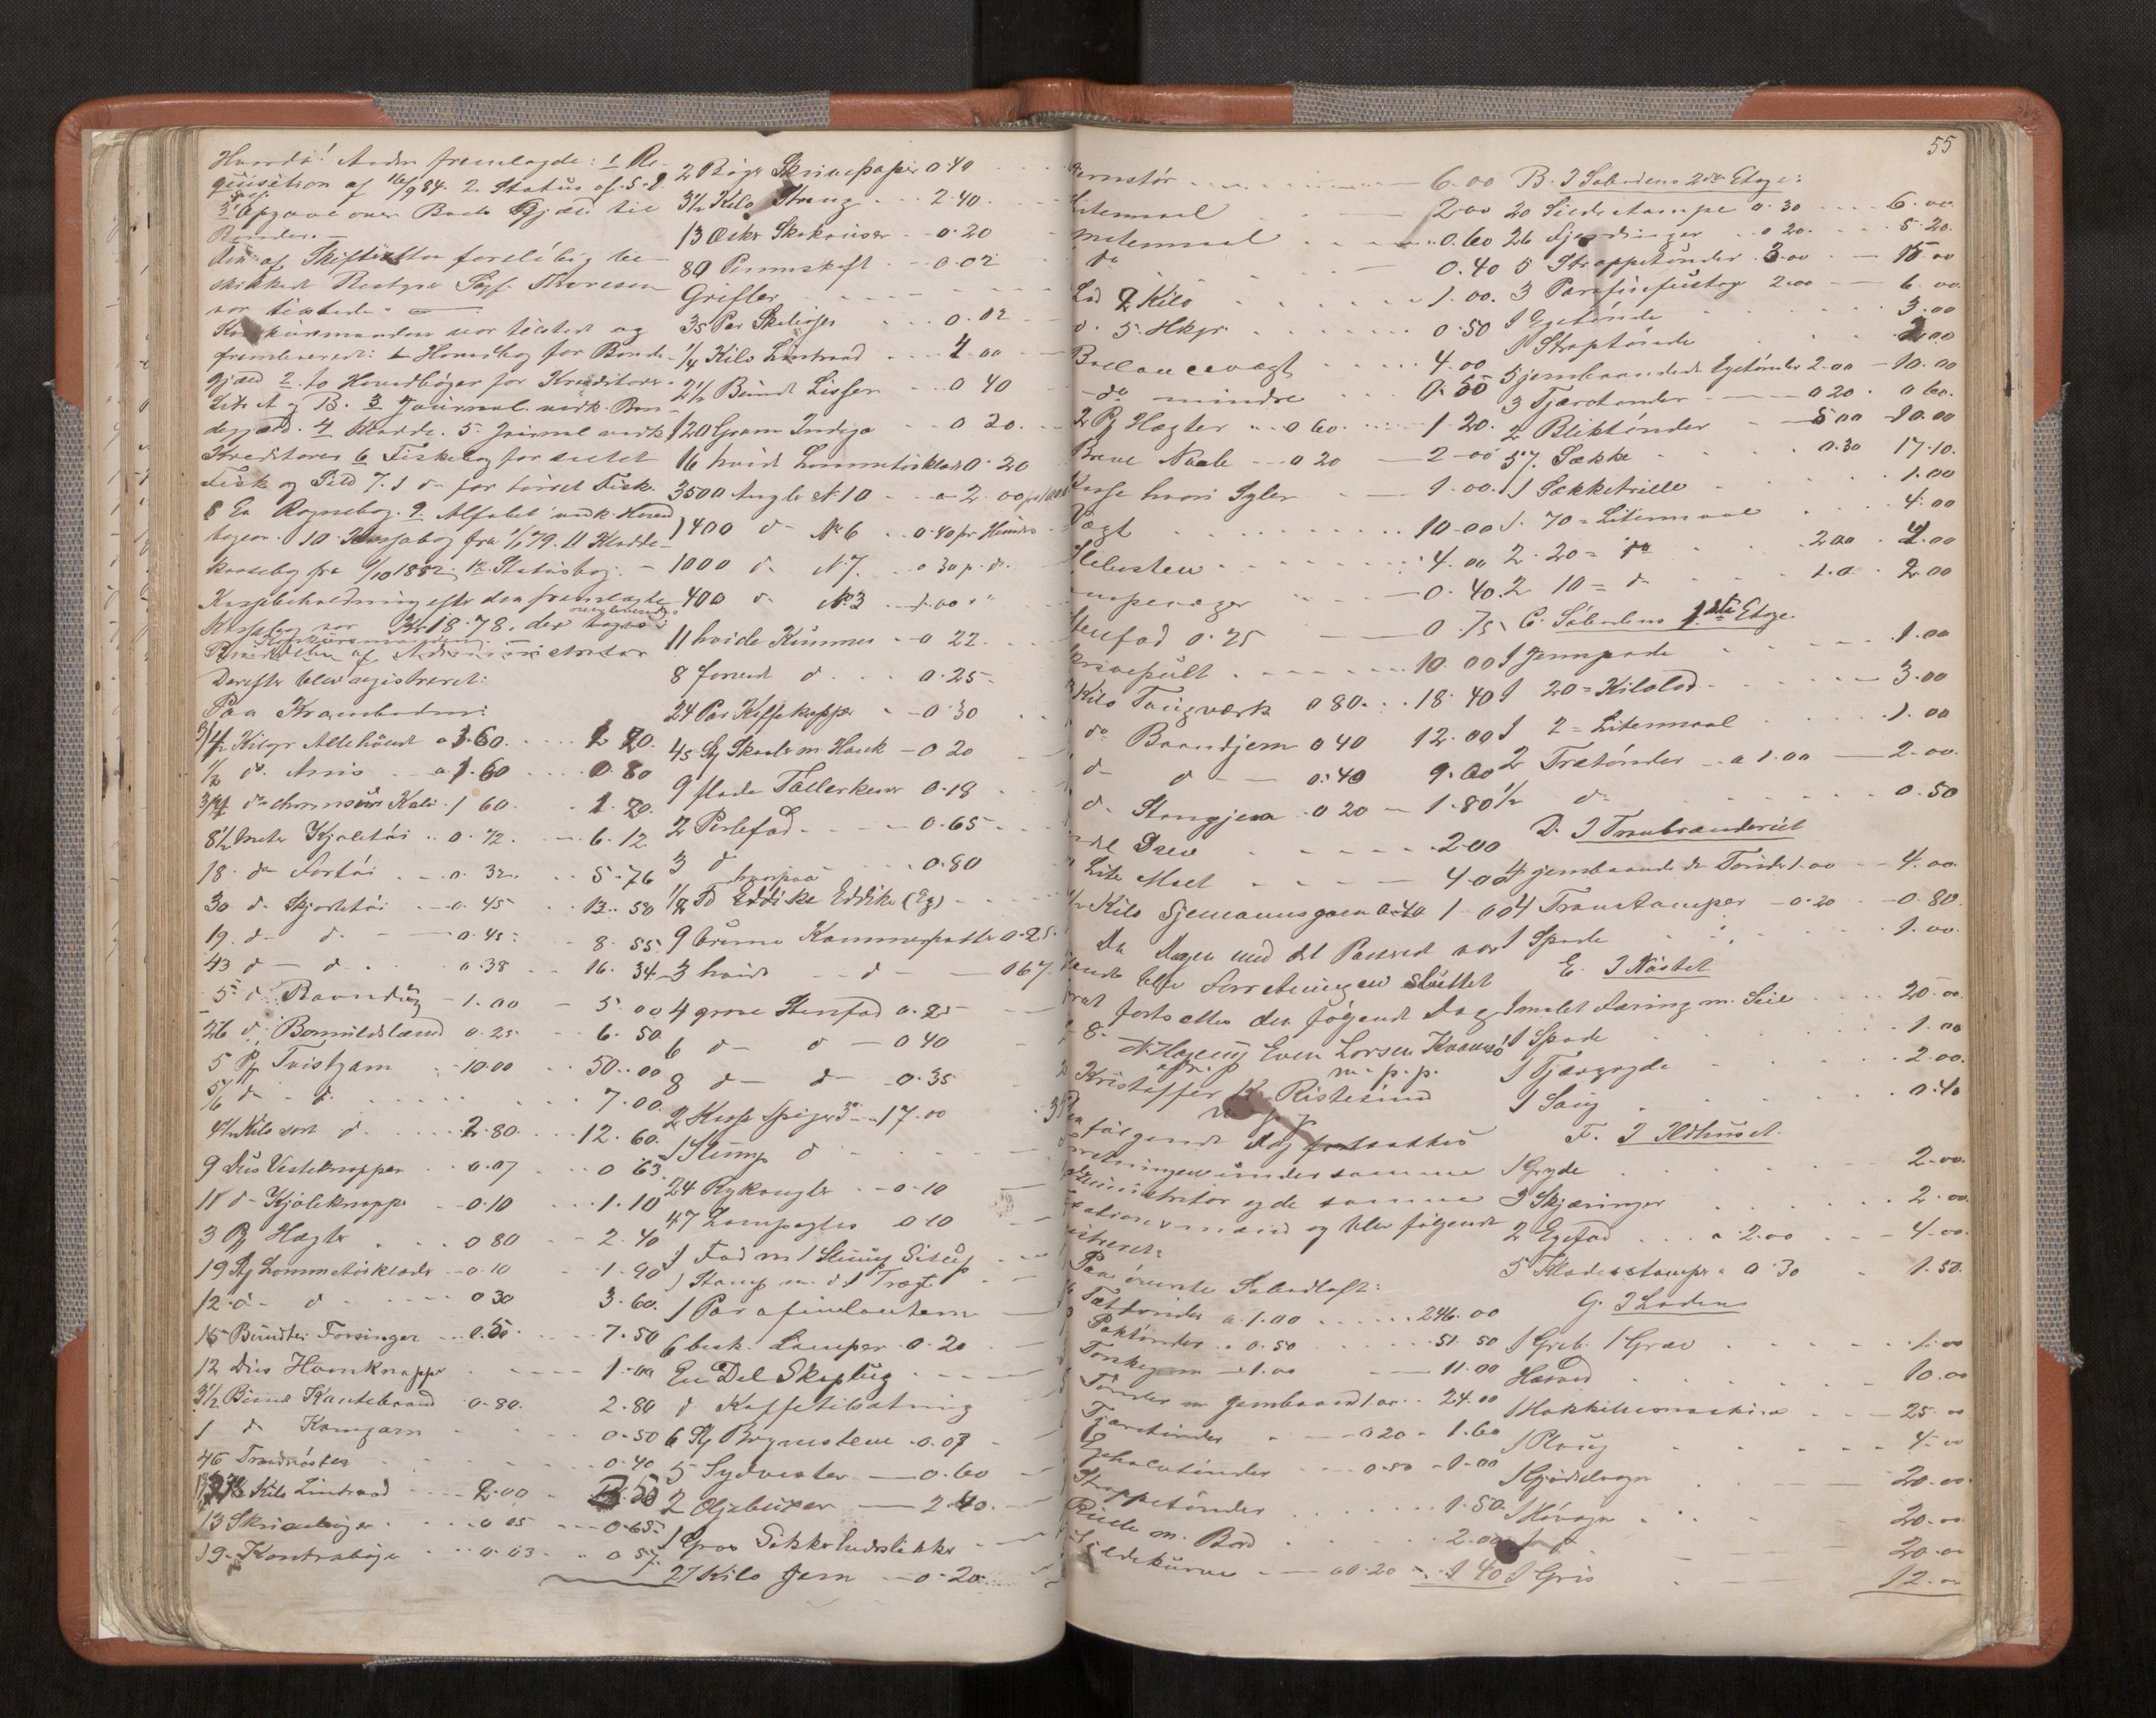 Hvorda! Anden fremlagde: 1 Re-
quisition af 16/9 84. 2. Status af s. d.
3 Opgave over Bocts Gjæld til
Bønder. —
Den af Skifteretten foreløbig be-
skikkede Bestyrer Thoresen
var tilstede. —
Konkursmanden var tilstede og
fremleverede: 1 Hovedbog for Bonde-
gjæld 2. to Hovedbøger for Kreditorer
Litr. A og B. 3 Journal vedk. Bon-
degjæld. 4 Kladde. 5. Journal vedk.
Kreditorer 6 Fiskebog for saltet
Fisk og Sild 7. 1 do for tørret Fisk.
8 En Rognebog. 9. Alfabet vedk. Hoved
bogen. 10 Kassabog fra 1/1 79. 11 Kladde-
kassebog fra 1/10 1882; 12. Statusbog. —
Kassebeholdning efter den fremlagte
Kassabog var Kr 18.78, der
af Administrator
Derefter blev registreret:
Paa Krambodens:
3/4 Kilogr Allehaande a 1.60 1 20.
1/2 do Anis a 1.60 0.80
3/4 do Kali 1 60. 1.20.
8 1/2 Meter Kjoletøi 0.72. 6.12
18. do Fortøi 0.32. 5.76
30 d. Skjortetøi 0.45 13.50
19. d- d. 0.45 8.55
43 d - d. 0.38 16.34
5 d. 1.00 5.00
26 d. Bomuldslærred 0.25 6.50
5 Pk Tvistgarn 10.00 50.00
5/6 do d. 7.00
4 1/2 Kilo sort d. 2.80. 12.60.
9 Dus Vesteknapper 0.07 0.63.
11 d- Kjoleknapper 0.10 1.10
3 Pk Hægter 0 80 2.40
19 Stk Lommetørklæder 0.10 1.90
12 d- d 0 30 3.60.
15 Bundter Forsinger 0.50 7.50
12 Dus Hornknapper 1.00
3 1/2 Bundt Kantebaand 0.80. 2.80
1 d Kamgarn 0.50
46 Traadnøster 0.40
Kilo Lintraad 2.00
13 Skrivebøger 0 05 0.65
19. Kontrabøger 0.03 0 57
2 Bøger Skrivepapir 0.40
3 1/2 Kilo Streng 2.40.
13 Æsker 0.20
80 Penneskaft 0.02
Grifler
35 Par 0.02
1/4 Kilo Lintraad 4.00
2 1/2 Bundt Lisser 0 40
120 Gram Indigo 0 20.
16 hvide Lommetørklæder 0.20
3500 Angler N 10 a 2.00 pr 1000
1400 d- No 6 0.40 pr Hundre
1000 d. N 7. 0 30 p. d.
400 d No 3 1.00
11 hvide Kummer 0 22.
8 d. 0.25
24 Par Kaffekopper 0.30
45 Stk Skaaler m. Hank 0 20
9 flade Tallerkener 0.18
2 Perlefad 0.65
3 d 0.80
1/2 Td Eddike (Eg)
9 brune Kammerpotter 0.25.
3 hvide d 0 67.
4 grove Stenfad 0.25
6 d d 0 40
8 d d 0.35
2 Kasse Spiger 17.00
1 Stump d
24 Rykangler 0.10
47 Lampeglas 0 10
1 Fad m 1 Stump Sirup
1 Stamp m. d 1 Tragt
1 Parafinlanterne
6 besk. Lamper 0.20
En Del Skaptøi
d Kaffetilsætning
6 Stk Brynestene 0.07
5 Sydvester 0.60
2 Oljebuxer 2.40.
1 Gros Sikkerhedsstikker
27 Kilo Jern 0.20
55
6.00
Litermaal 2.00
0.60
do 0.40
Lod 2 Kilo 1.00.
5. Hkgr. 0.50
Ballancevægt 4.00
do mindre 0.50
2 Pk Hægter 0 60. 1 20.
Brune Naale 0 20 2.00
Kasse hvori Syler 1.00.
Vægt 10.00
Slibesten 4.00
0.40.
Stenfad 0.25 0.75
Skrivepult 10.00
Kilo Taugværk 0 80. 18.40
do Baandjern 0 40 12.00
d d 0.40 9.60
d. Stangjern 0 20 1.80
Del Drev 2.00
4.00
Kilo Sjemannsgarn 0.40 1 00
Da Dagen med det Passerede var
blev Forretningen sluttet
fortsættes den følgende Dag
8.
Even Larsen
m. p. p.
Kristoffer K. Ristesund
følgende Dag fortsattes
Forretningen under samme
Administrator og de samme
Taxationsmænd og blev følgende
registreret:
Paa øverste Søbodloft:
Tættønder a 1.00 246.00
Paktønder 0.50 51.50
1.00 11.00
Tønder m Jernbaand 24.00
Tjæretønder 0 20 1.60
0.50 1.00
Strappetønder 1.50
m. Bord 2.00
Sildekurve 0.20 1 40
B. I Søbodens 2den Etage:
20 Sildestampe a. 30 6.00
26 Fjerdinger 0 20. 5.20.
5 Strappetønder 3.00 15.00
3 Parafinfustage 2.00 6 00
1 Egetønde 3.00
1 Straptønde 2.00
5 jernbaandede Egetønder 2.00 10.00
3 Tjæretønder 0 20. 0 60.
2 Bliktønder 5.00 10.00
57. Sække 0.30 17.10.
1 Sækketrille 1.00
1. 70 = Litermaal 4.00
2. 20 = do 2.00 4.00
2 10 = d 1.0. 2.00
C. Søbodens 1ste Etage.
1 Jernspade 1.00
1 20 = Kilolod 3.00
1 2 = Litermaal 1.00
2 Trætønder a 1.00 2.00.
1/2 d 0.50
D. I Tranbrænderiet
4 jernbaandede Tønder 1.00 4.00.
4 Transtamper 0.20 0.80.
1 Spade 1.00.
E. I Nøstet
1 malet Færing m. Seil 20.00.
1 Spade 1.00
1 Tjæregryde 2.00.
1 Saug 0.40
F. I Ildhuset.
1 Gryde 2.00.
2 Skjæringer 2.00
2 Egefad a 2.00 4.00.
5 Klædesstampe a 0 30 1.50.
G. I Laden
1 Greb. 1 Grev 1.00
10.00
1 Hakkelsemaskine 25.00
1 Ploug 4.00
1 Gjødselvogn 20.00
1 Høvogn 20.00
1 d 20.00
1 Gris 12.00